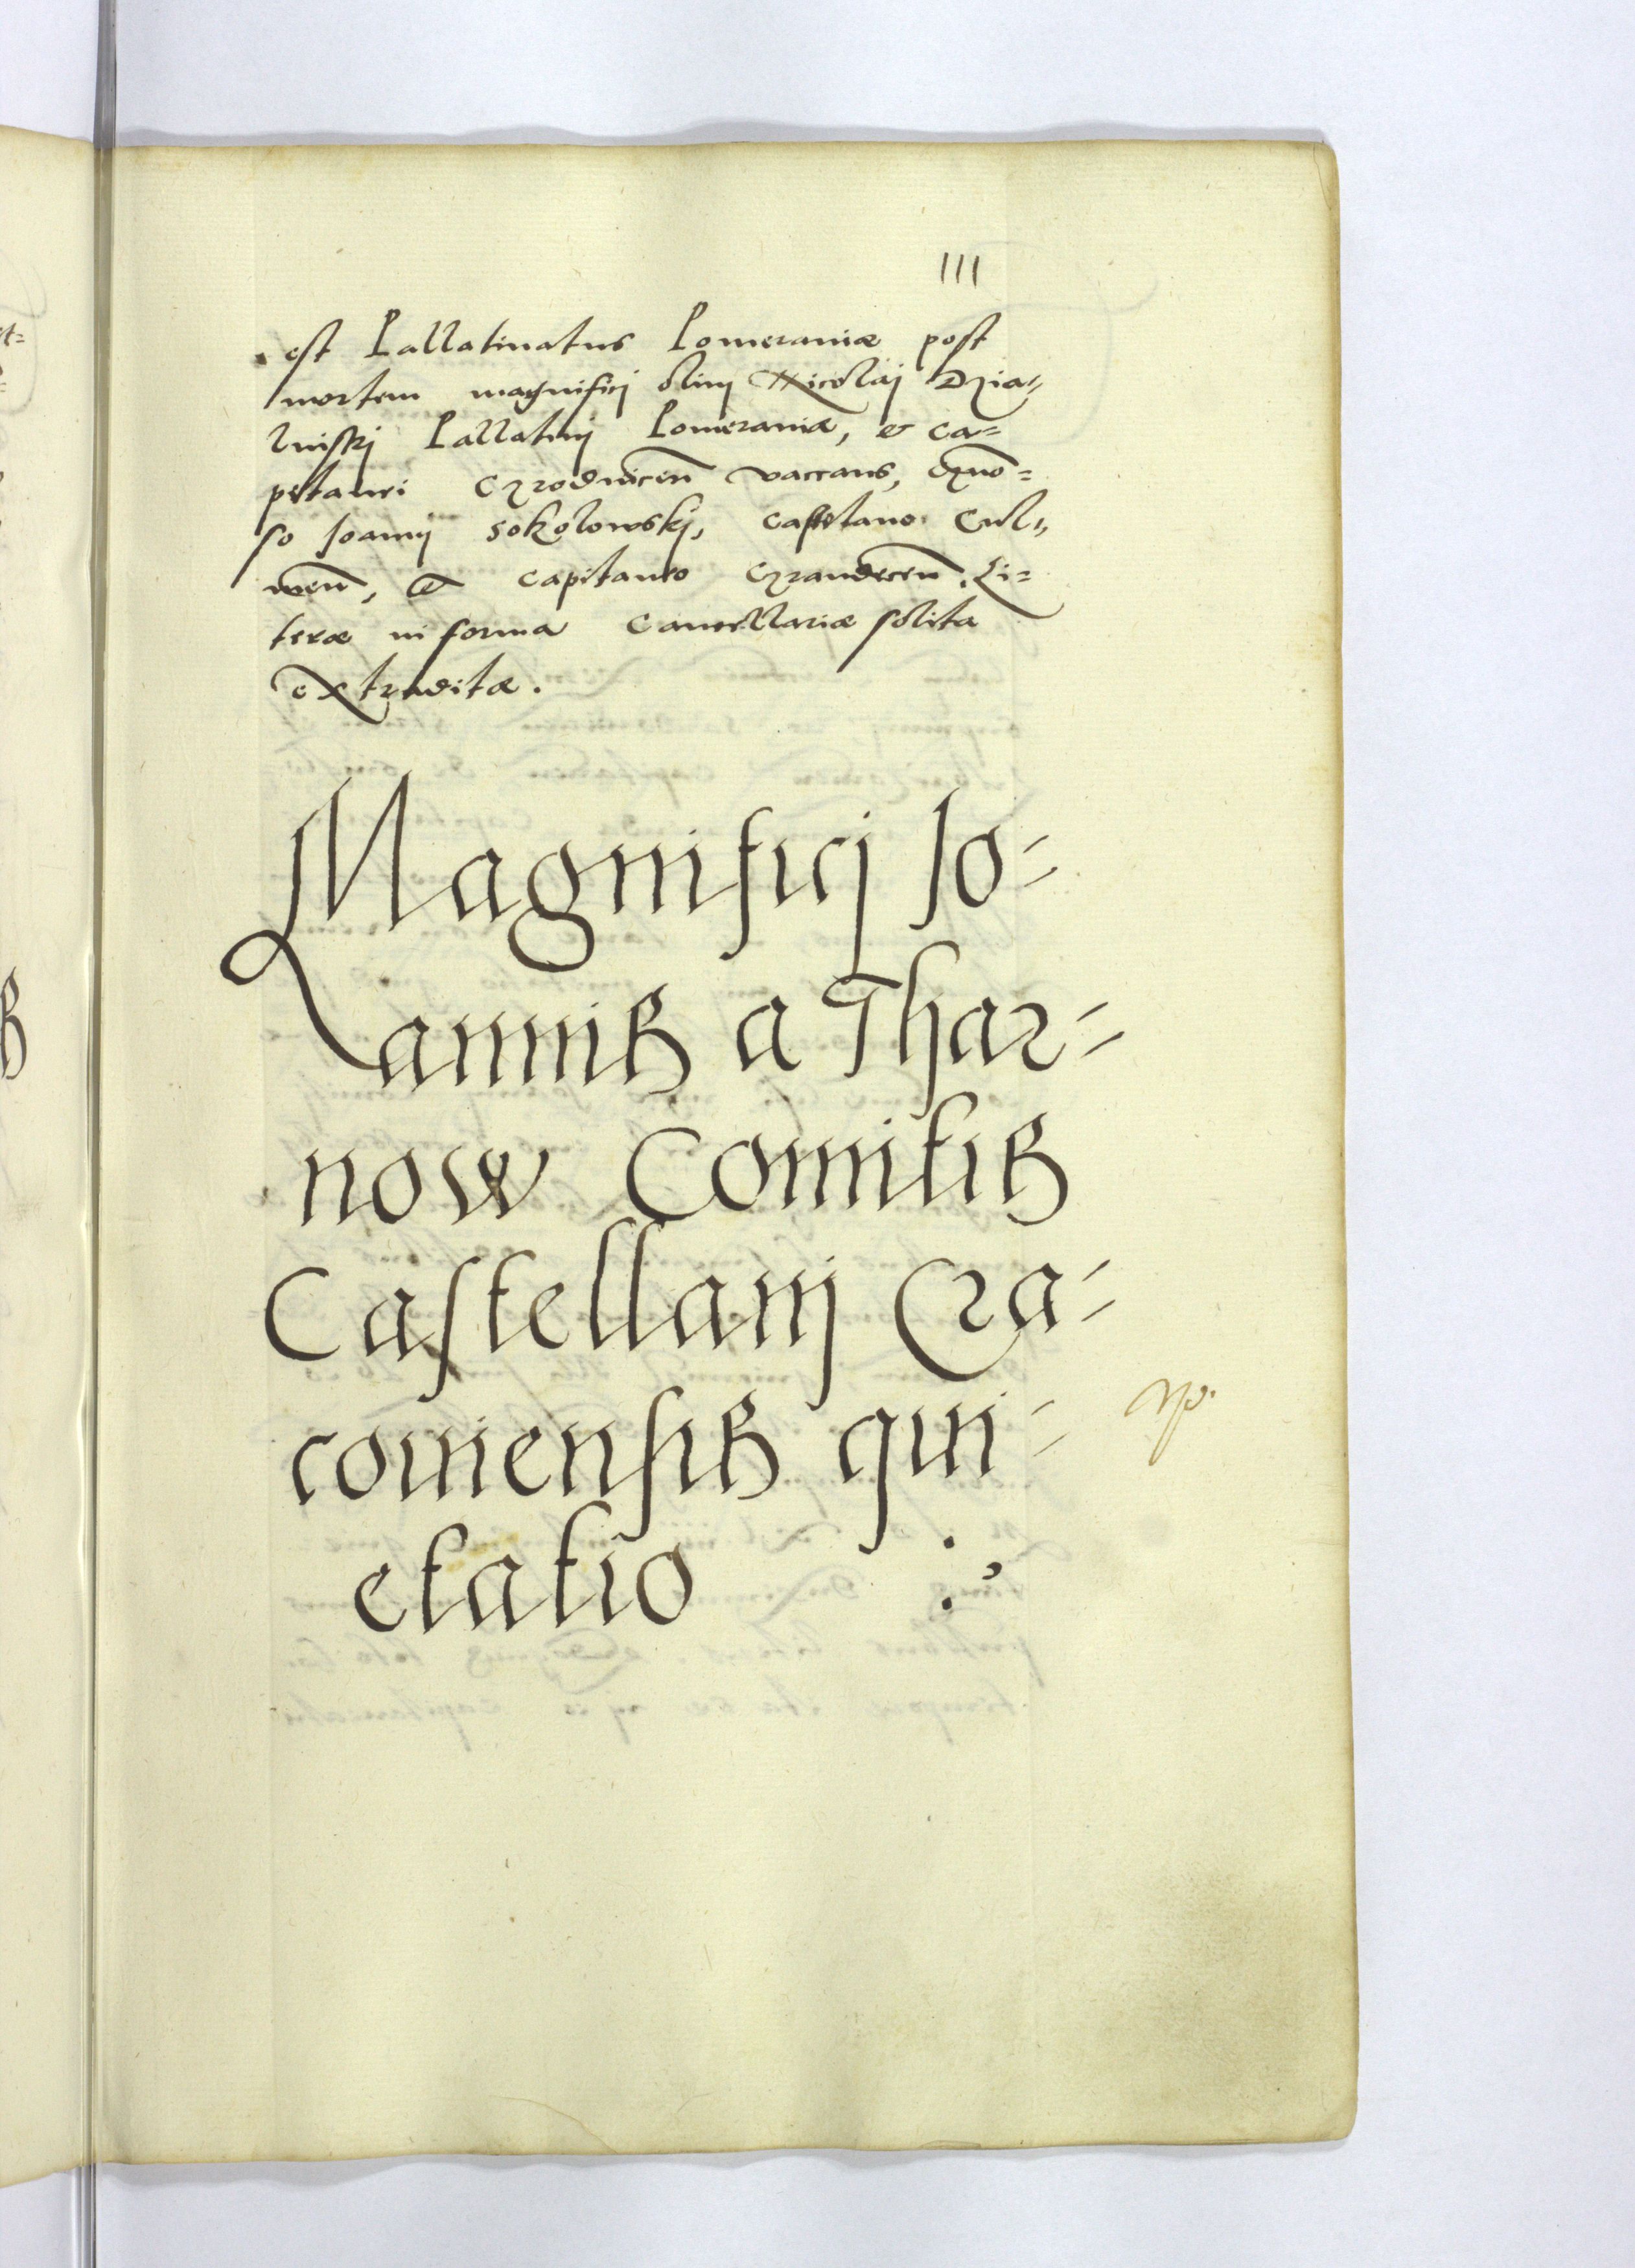 111
est Pallatinatus Pomeraniæ post
mortem magnificj olim Nicolaj Dzia=
linskj Pallatinj Pomeraniæ, et ca=
pitanei Czrodnicen̄ vaccans, gn̄o=
so Joannj Sokolowskj, castelano Cul=
men̄, et capitaneo Czraudecen̄. Li=
teræ in forma Cancellariæ solita
extraditæ.
Magnificj Jo=
annis a Thar=
now Comitis
Castellanj Cra=
couiensis qui=
etatio